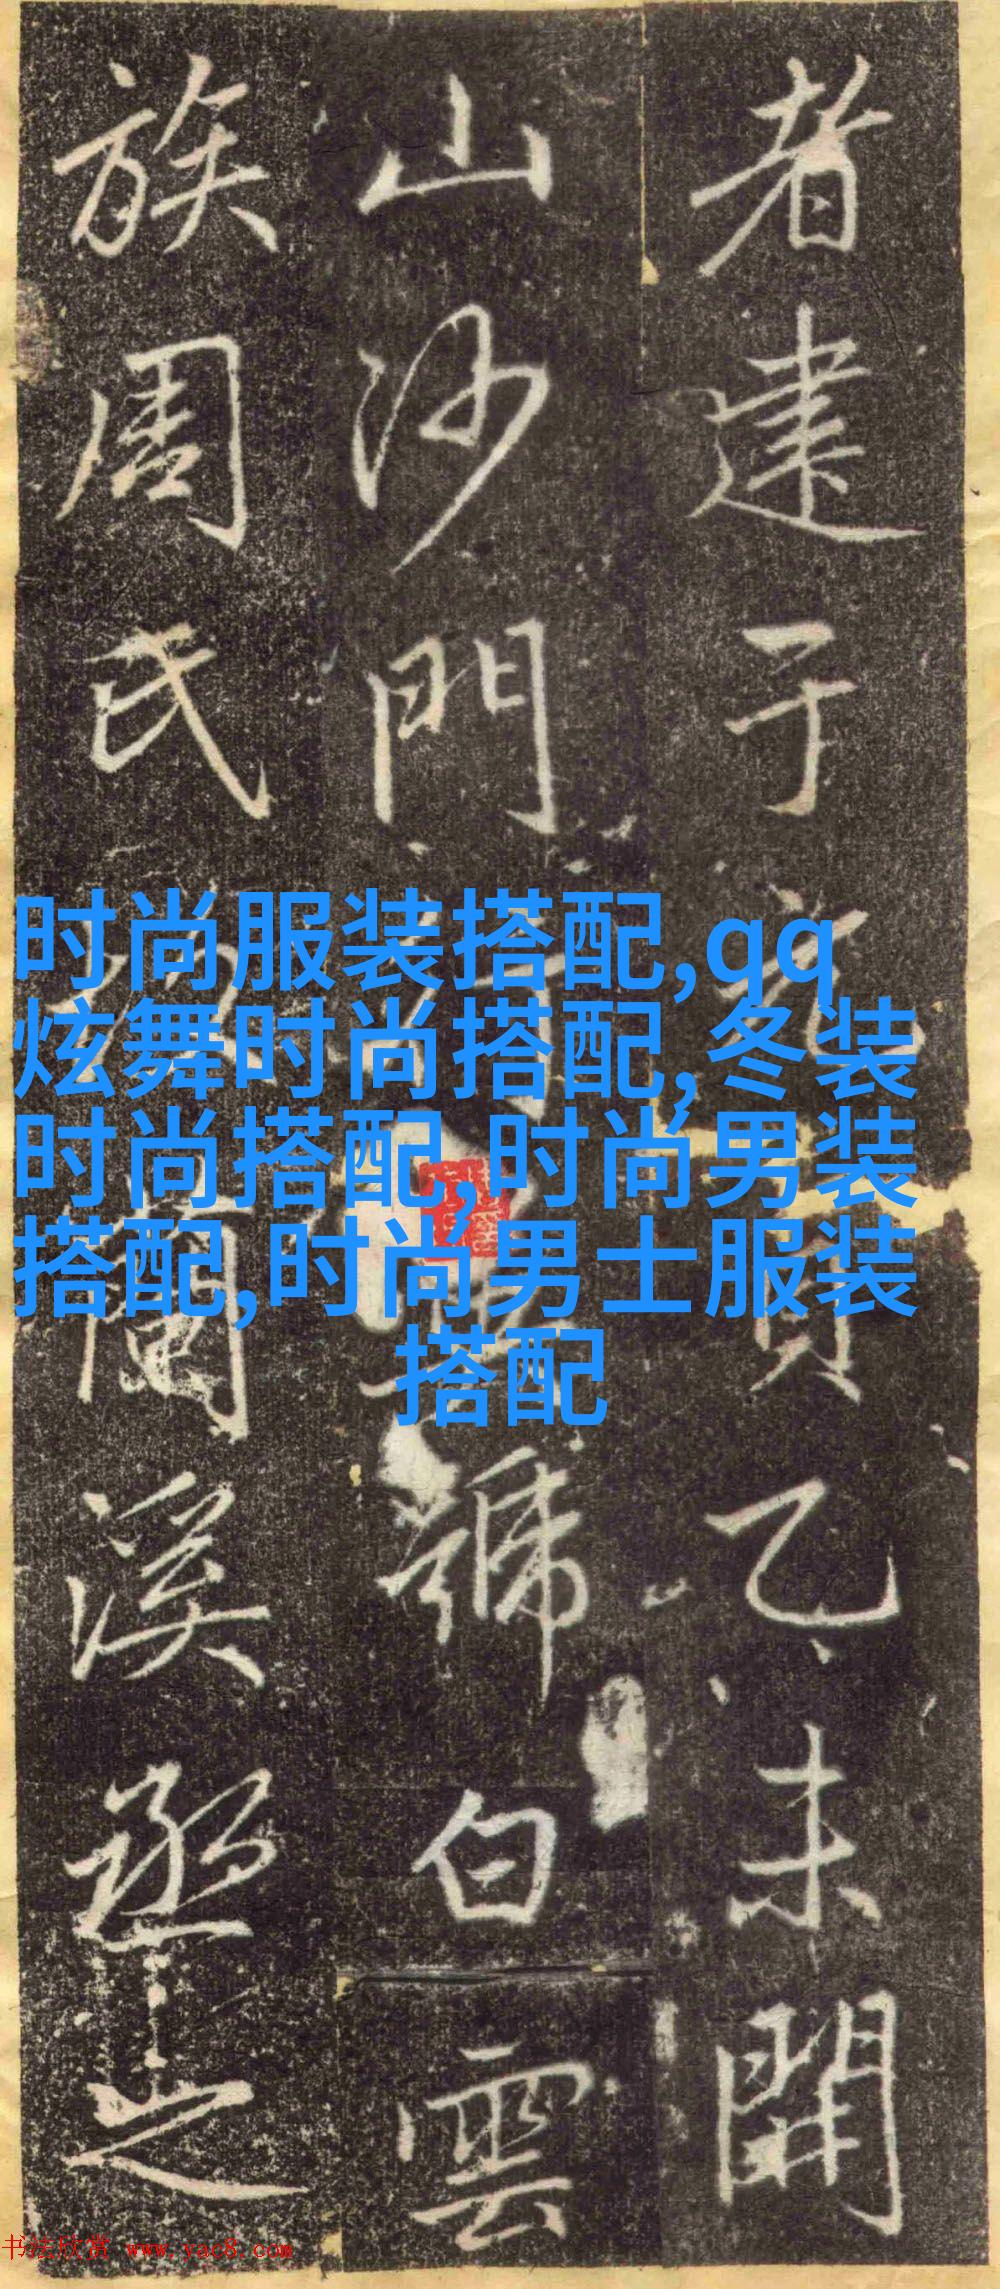 者建于元貞乙未開
山沙門號白雲
族周氏蘭溪丞之
时尚服装搭配,qq
炫舞时尚搭配,冬装
时尚搭配,时尚男装
搭配,时尚男士服装
搭配
书法欣赏 www.yac8.com